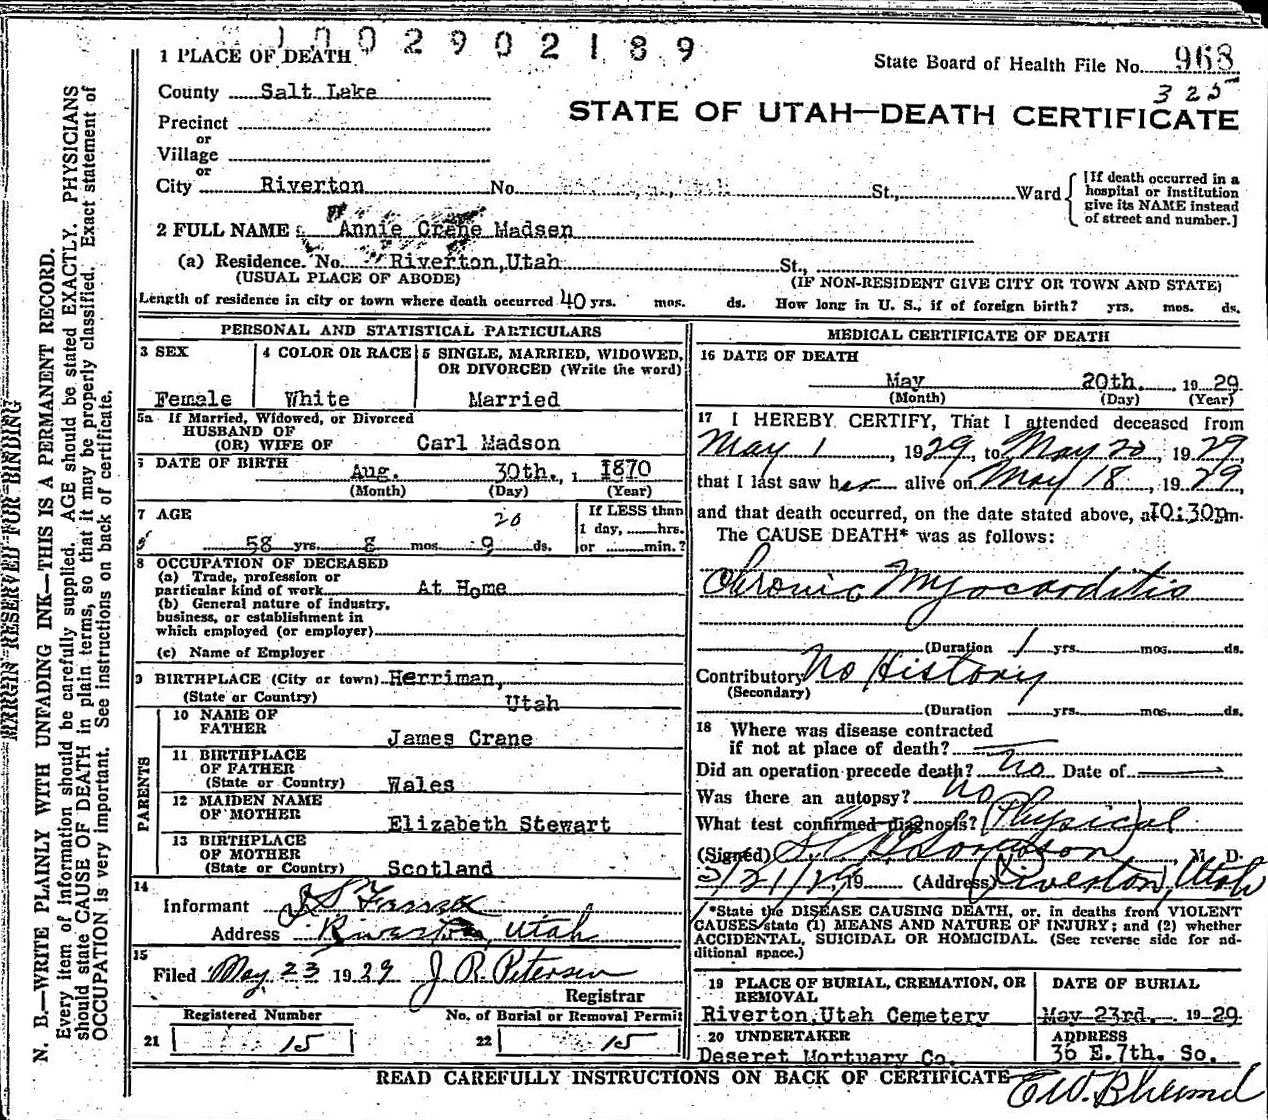 1002902189
1 PLACE OF DEATH
State Board of Health File No. 968
325
County Salt Lake
STATE OF UTAH—DEATH CERTIFICATE
Precinct
or
Village
or
City Riverton No. St., Ward
[If death occurred in a hospital or institution give its NAME instead of street and number.]
2 FULL NAME Annie Crane Madsen
(a) Residence. No. Riverton, Utah St.,
(USUAL PLACE OF ABODE) (IF NON-RESIDENT GIVE CITY OR TOWN AND STATE)
Length of residence in city or town where death occurred 40 yrs. mos. ds. How long in U. S., if of foreign birth? yrs. mos. ds.
PERSONAL AND STATISTICAL PARTICULARS
3 SEX
Female
4 COLOR OR RACE
White
5 SINGLE, MARRIED, WIDOWED,
OR DIVORCED (Write the word)
Married
5a If Married, Widowed, or Divorced
HUSBAND OF
(OR) WIFE OF Carl Madson
6 DATE OF BIRTH Aug. 30th., 1 1870
(Month) (Day) (Year)
7 AGE
20
58 yrs. 8 mos. 9 ds.
If LESS than
1 day, hrs.
or min.?
8 OCCUPATION OF DECEASED
(a) Trade, profession or
particular kind of work At Home
(b) General nature of industry,
business, or establishment in
which employed (or employer)
(c) Name of Employer
9 BIRTHPLACE (City or town) Herriman,
(State or Country) Utah
PARENTS
10 NAME OF
FATHER James Crane
11 BIRTHPLACE
OF FATHER
(State or Country) Wales
12 MAIDEN NAME
OF MOTHER Elizabeth Stewart
13 BIRTHPLACE
OF MOTHER
(State or Country) Scotland
14
Informant
Address Riverton, Utah
15
Filed May 23 1929 J R. Petersen
Registrar
Registered Number
21 15
No. of Burial or Removal Permit
22 15
MEDICAL CERTIFICATE OF DEATH
16 DATE OF DEATH
May 20th. 1929
(Month) (Day) (Year)
17 I HEREBY CERTIFY, That I attended deceased from
May 1, 1929, to May 20, 1929,
that I last saw her alive on May 18, 1929,
and that death occurred, on the date stated above, at 10:30pm.
The CAUSE DEATH* was as follows:
Chronic Myocarditis
(Duration 1 yrs. mos. ds.
Contributory No History
(Secondary)
(Duration yrs. mos. ds.
18 Where was disease contracted
if not at place of death?
Did an operation precede death? No Date of
Was there an autopsy? No
What test confirmed diagnosis? Physical
(Signed) M. D.
5/21/29, 19 (Address) Riverton, Utah
*State the DISEASE CAUSING DEATH, or, in deaths from VIOLENT
CAUSES state (1) MEANS AND NATURE OF INJURY; and (2) whether
ACCIDENTAL, SUICIDAL OR HOMICIDAL. (See reverse side for ad-
ditional space.)
19 PLACE OF BURIAL, CREMATION, OR
REMOVAL
Riverton, Utah Cemetery
DATE OF BURIAL
May 23rd. 1929
20 UNDERTAKER
Deseret Mortuary Co.
ADDRESS
36 E. 7th. So.
READ CAREFULLY INSTRUCTIONS ON BACK OF CERTIFICATE
MARGIN RESERVED FOR BINDING
N. B.—WRITE PLAINLY WITH UNFADING INK—THIS IS A PERMANENT RECORD.
Every item of information should be carefully supplied. AGE should be stated EXACTLY. PHYSICIANS
should state CAUSE OF DEATH in plain terms, so that it may be properly classified. Exact statement of
OCCUPATION is very important. See instructions on back of certificate.